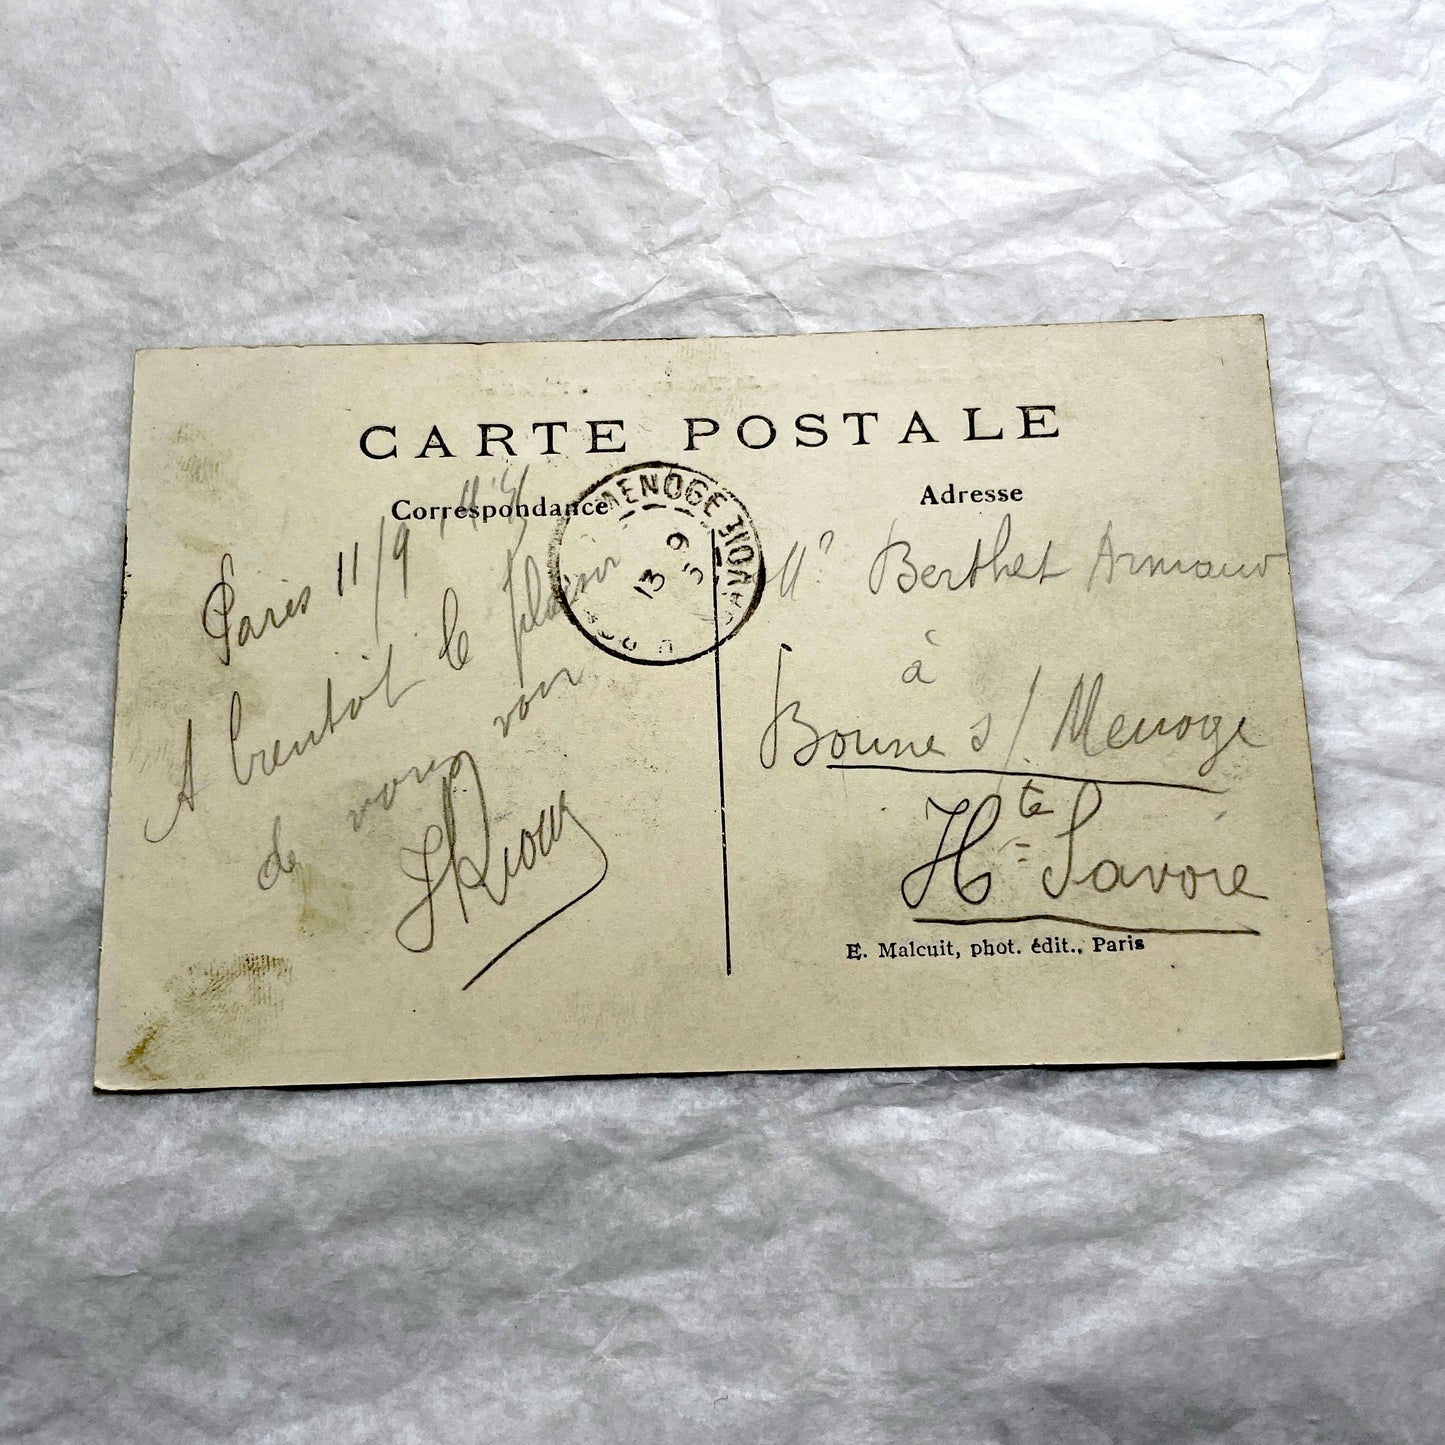 CARTE POSTALE
Correspondance
Adresse
Paris 11/9
A bientôt le plaisir
de vous voir
MENOGE
SAVOIE
13 9
Mr Berthet Armand
à
Bonne s/ Menoge
Hte Savoie
E. Malcuit, phot. édit., Paris